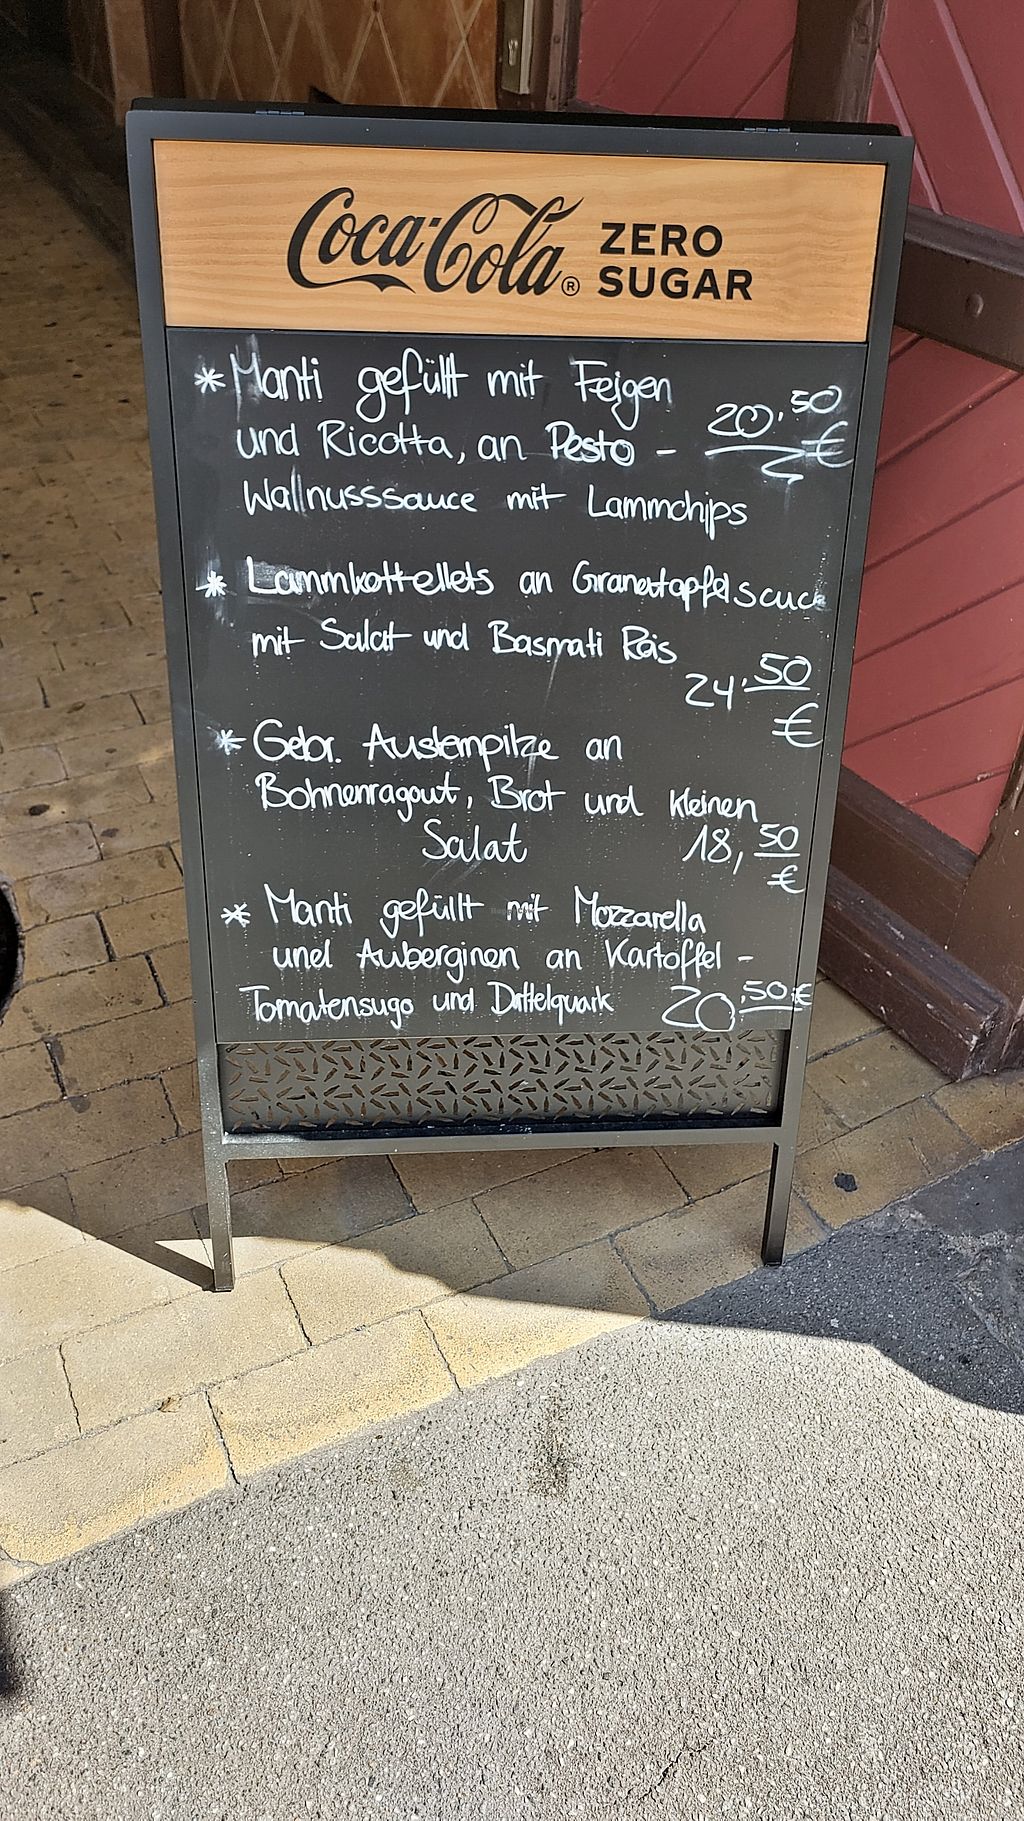 Coca-Cola® ZERO SUGAR
* Manti gefüllt mit Feigen
und Ricotta, an Pesto - 20,50 €
Wallnusssauce mit Lammchips
* Lammkottellets an Granatapfelsauce
mit Salat und Basmati Reis
24,50 €
* Gebr. Austernpilze an
Bohnenragout, Brot und kleinen
Salat 18,50 €
* Manti gefüllt mit Mozzarella
und Auberginen an Kartoffel -
Tomatensugo und Dattelquark 20,50 €